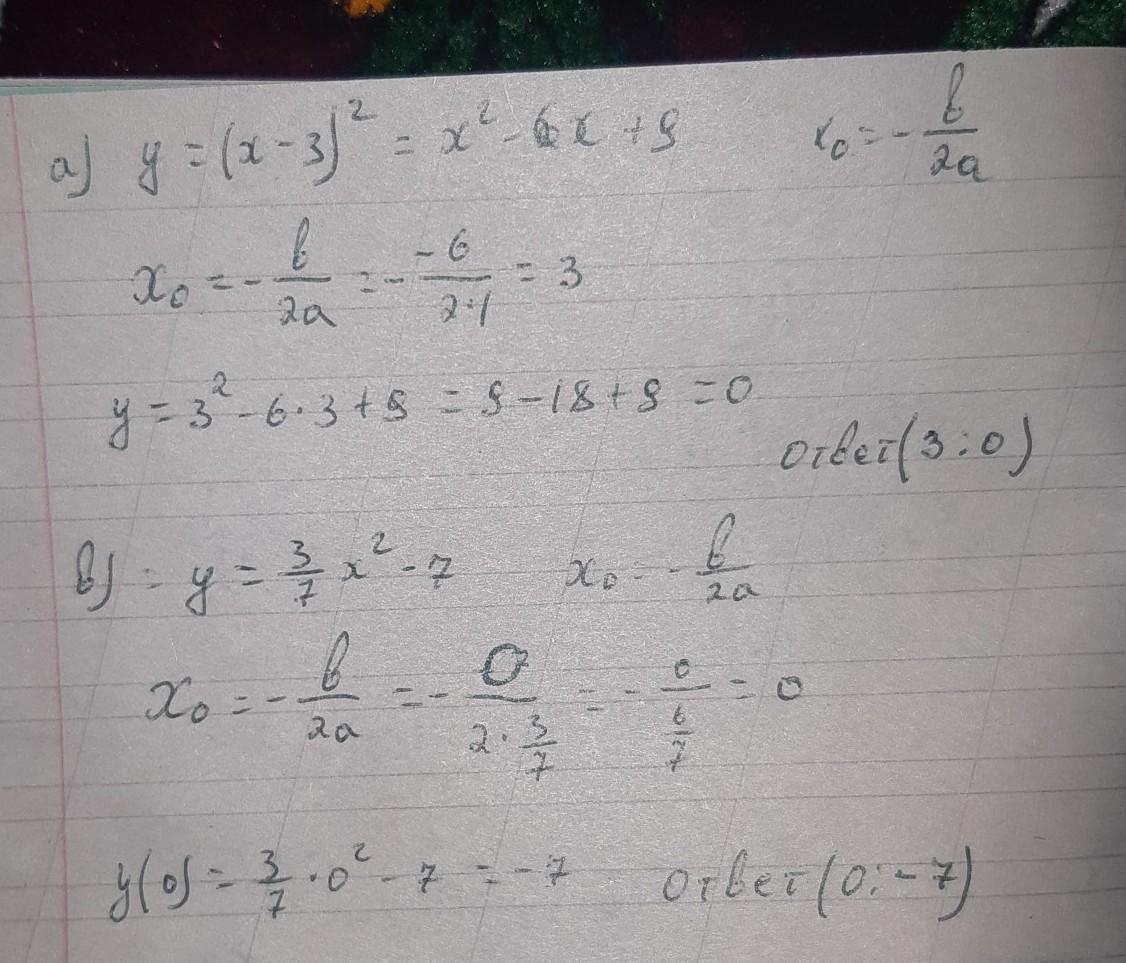 а) y = (x - 3)² = x² - 6x + 9    x₀ = - b/2a
x₀ = - b/2a = - -6/2·1 = 3
y = 3² - 6·3 + 9 = 9 - 18 + 9 = 0
ответ (3 : 0)
в) - y = 3/7 x² - 7    x₀ = - b/2a
x₀ = - b/2a = - 0/(2·3/7) = - 0/(6/7) = 0
y(0) = 3/7 · 0² - 7 = -7    ответ (0 : -7)